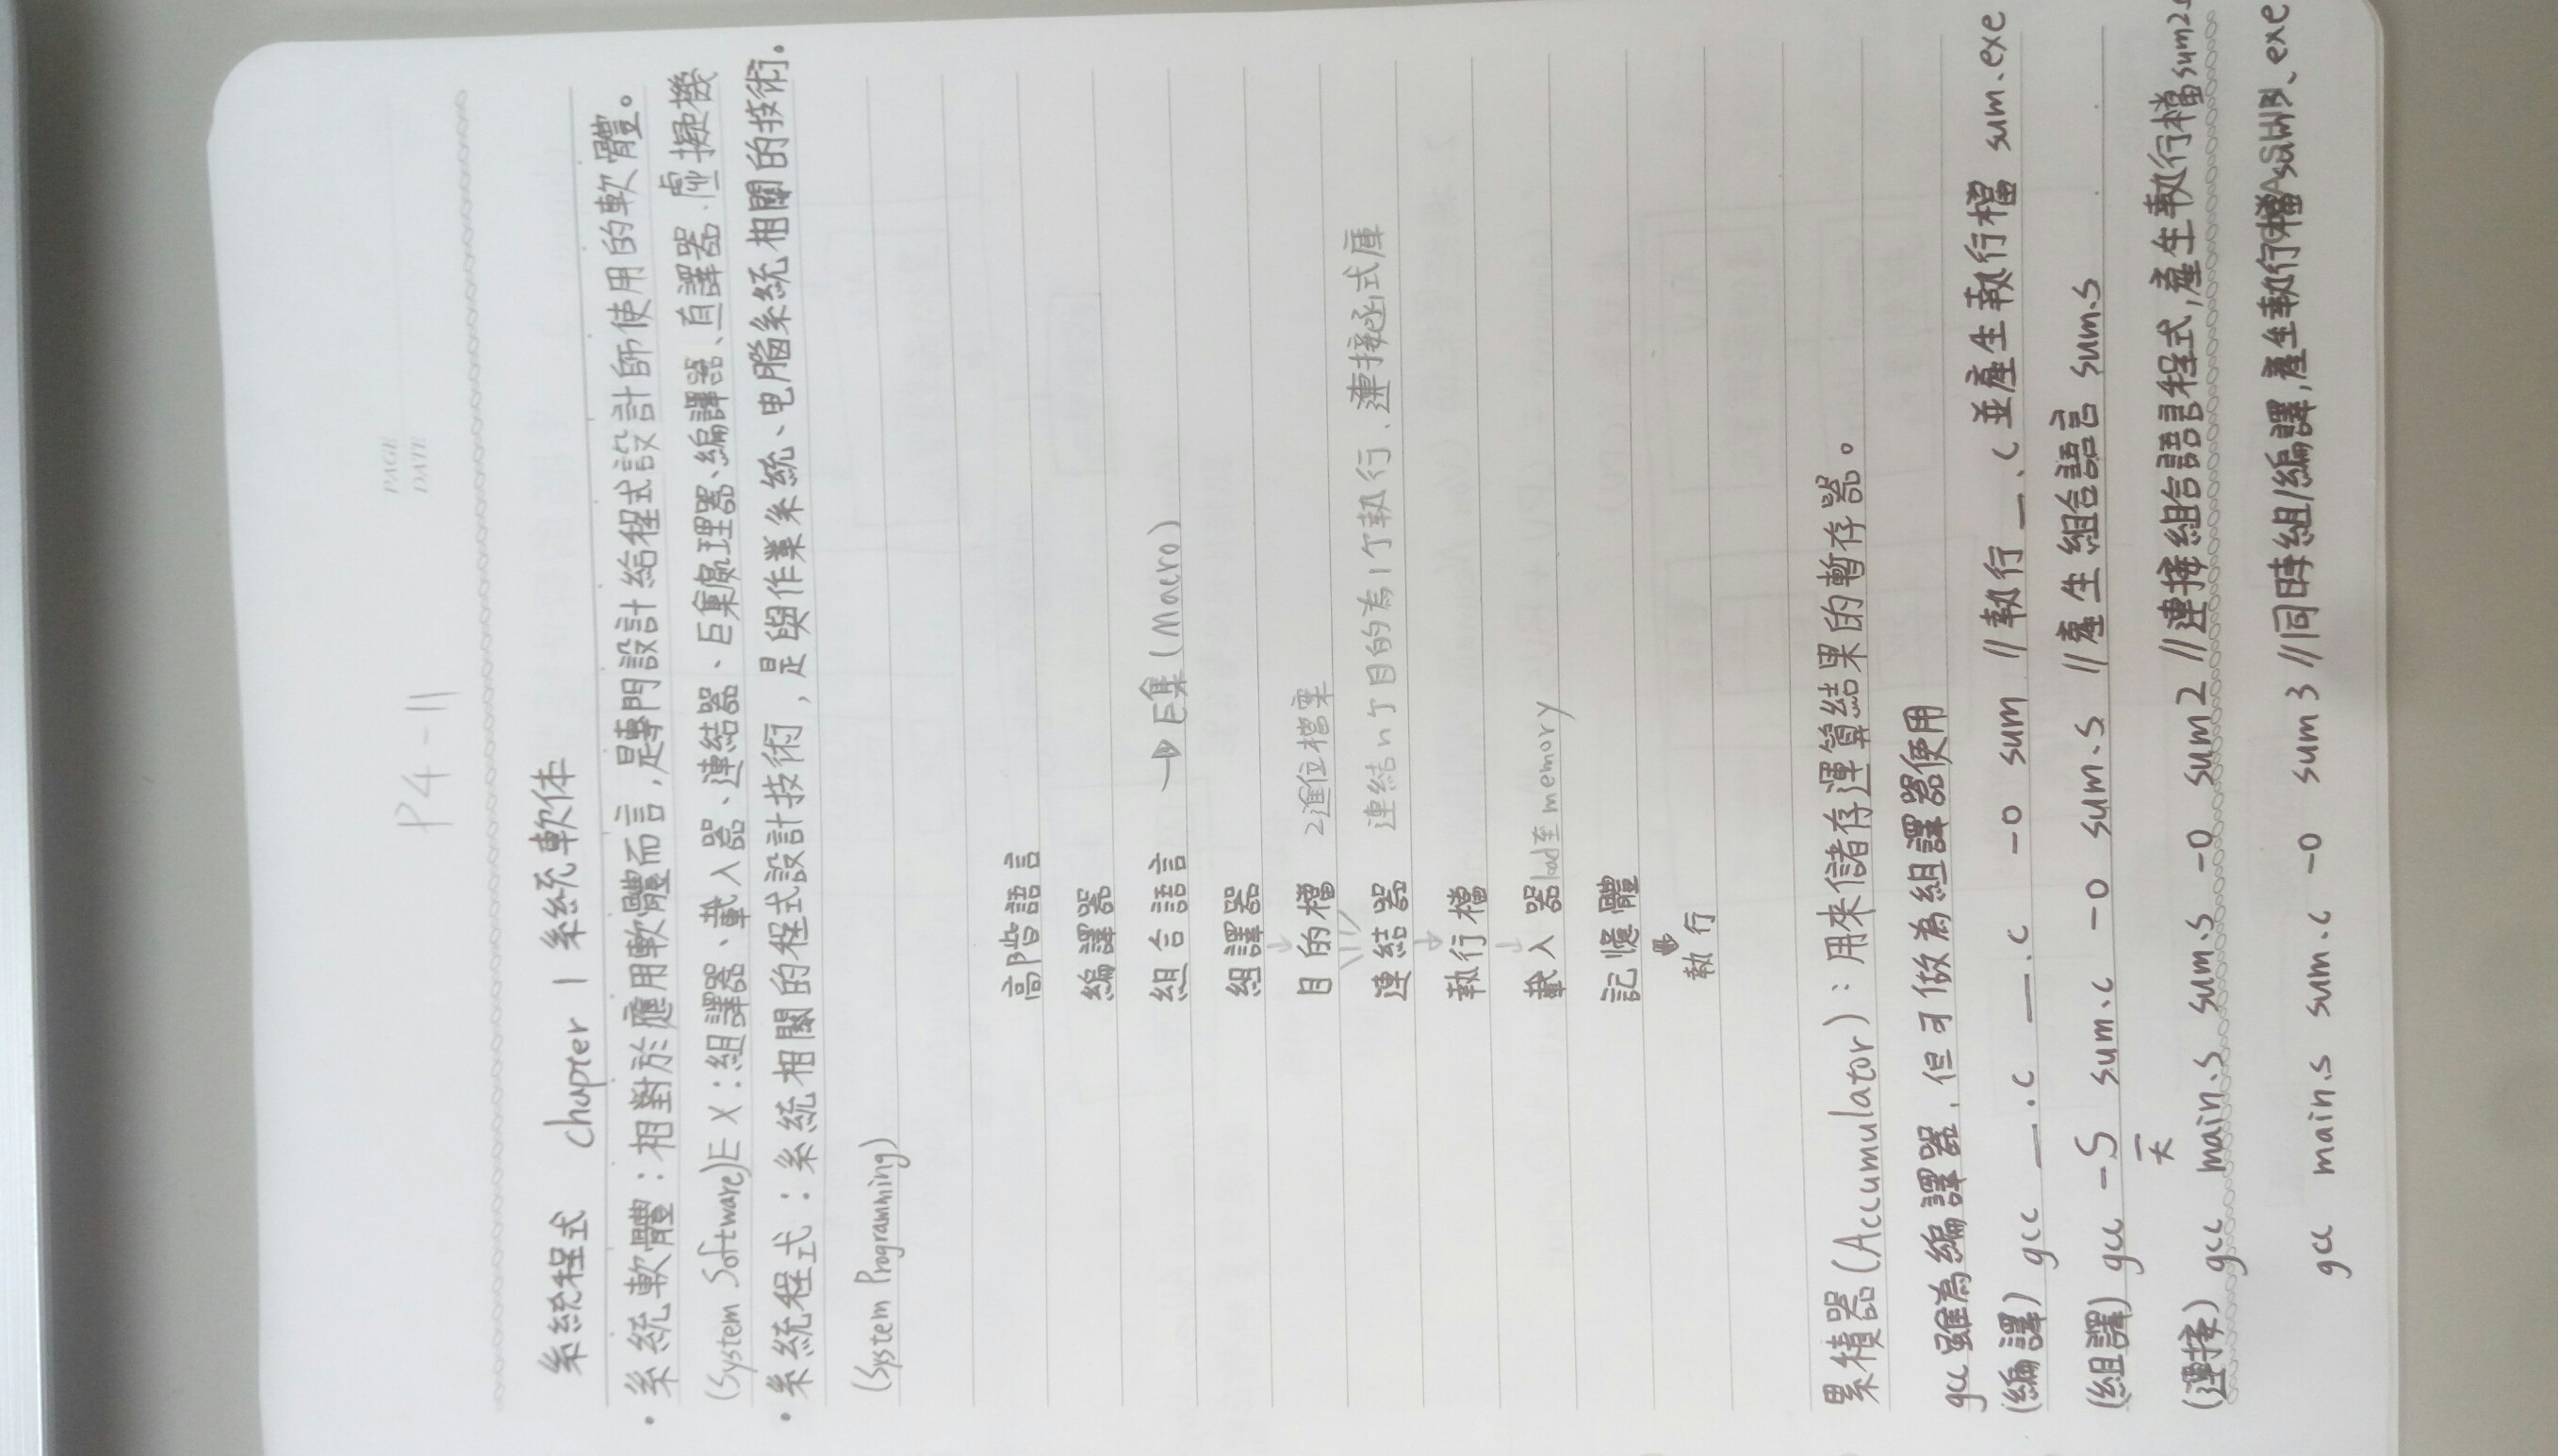 PAGE
DATE
P4-11
系統程式 chapter 1 系統軟体
・系統軟體：相對於應用軟體而言，是專門設計給程式設計師使用的軟體。
(System Software) EX：組譯器、載入器、連結器、巨集處理器、編譯器、直譯器、虛擬機
・系統程式：系統相關的程式設計技術，是與作業系統、电腦系統相關的技術。
(System Programming)
高階語言
編譯器
組合語言 → 巨集 (Macro)
組譯器
目的檔 2進位檔案
連結器 連結n个目的為1个執行、連接函式庫
執行檔
載入器 load至memory
記憶體
執行
累積器(Accumulator)：用來儲存運算結果的暫存器。
gcc雖為編譯器，但可做為組譯器使用
(編譯) gcc _.c _.c _.c -o sum //執行_.c並產生執行檔 sum.exe
(組譯) gcc -S sum.c -o sum.s //產生組合語言 sum.s
大
(連接) gcc main.s sum.s -o sum2 //連接組合語言程式,產生執行檔sum2
gcc main.s sum.c -o sum3 //同時組/編譯,產生執行檔 .exe